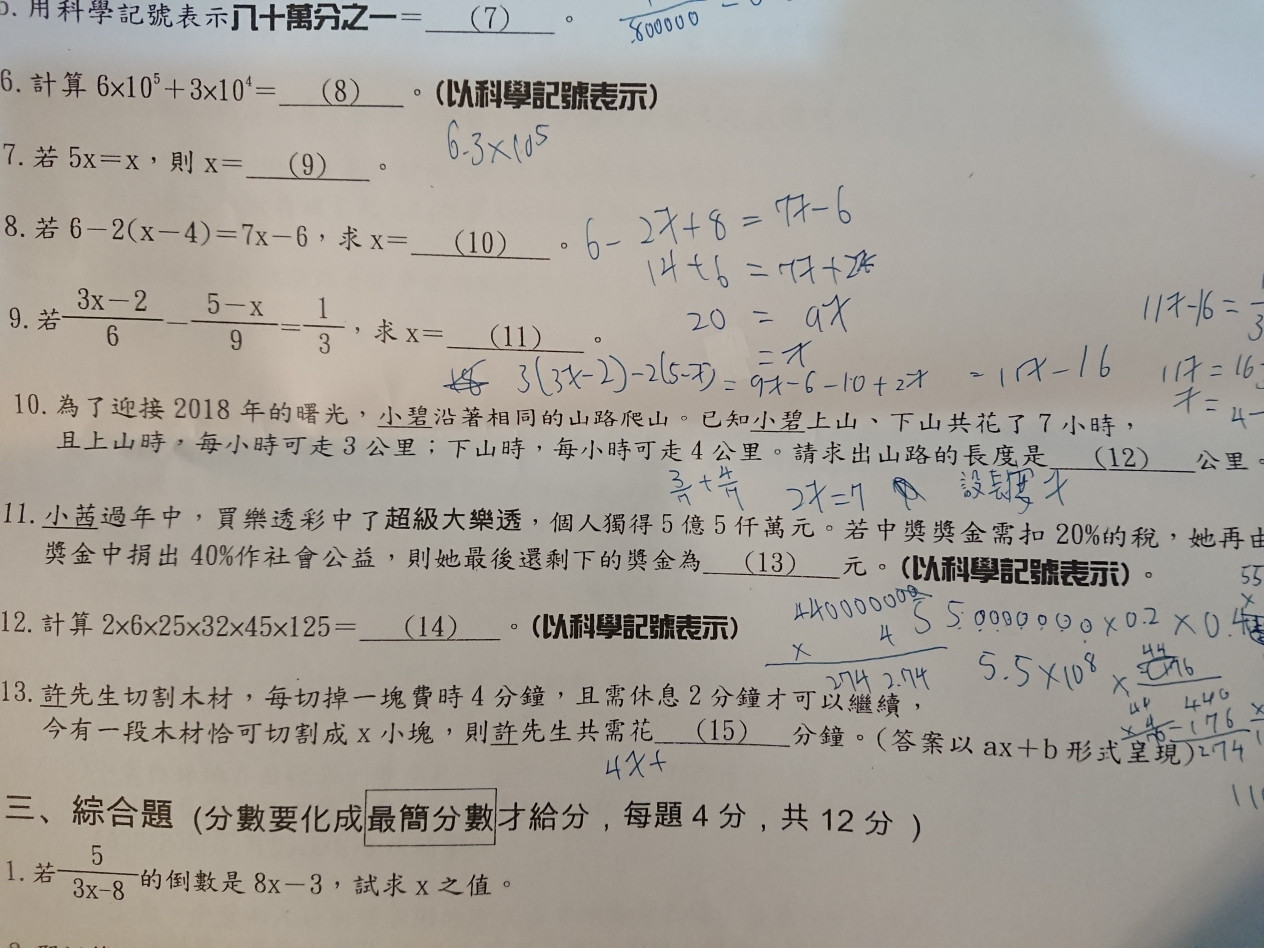 5. 用科學記號表示八十萬分之一=　(7)　。
800000
6. 計算 6×10⁵+3×10⁴=　(8)　。(以科學記號表示)
6.3×10⁵
7. 若 5x=x，則 x=　(9)　。
8. 若 6-2(x-4)=7x-6，求 x=　(10)　。
6-2x+8=7x-6
14+6=7x+2x
20=9x
=x
9. 若 (3x-2)/6-(5-x)/9=1/3，求 x=　(11)　。
11x-16=
3(3x-2)-2(5-x)=9x-6-10+2x=11x-16
11x=16
x=
10. 為了迎接 2018 年的曙光，小碧沿著相同的山路爬山。已知小碧上山、下山共花了 7 小時，
且上山時，每小時可走 3 公里；下山時，每小時可走 4 公里。請求出山路的長度是　(12)　公里。
3/7+4/7　2x=7　設長度x
11. 小茜過年中，買樂透彩中了超級大樂透，個人獨得 5 億 5 仟萬元。若中獎獎金需扣 20%的稅，她再由
獎金中捐出 40%作社會公益，則她最後還剩下的獎金為　(13)　元。(以科學記號表示)。
12. 計算 2×6×25×32×45×125=　(14)　。(以科學記號表示)
×0.2×0.4
× 4
274 2.74
5.5×10⁸×
13. 許先生切割木材，每切掉一塊費時 4 分鐘，且需休息 2 分鐘才可以繼續，
今有一段木材恰可切割成 x 小塊，則許先生共需花　(15)　分鐘。(答案以 ax+b 形式呈現)
440
-176
274
4x+
三、綜合題 (分數要化成最簡分數才給分，每題 4 分，共 12 分 )
1. 若 5/(3x-8) 的倒數是 8x-3，試求 x 之值。